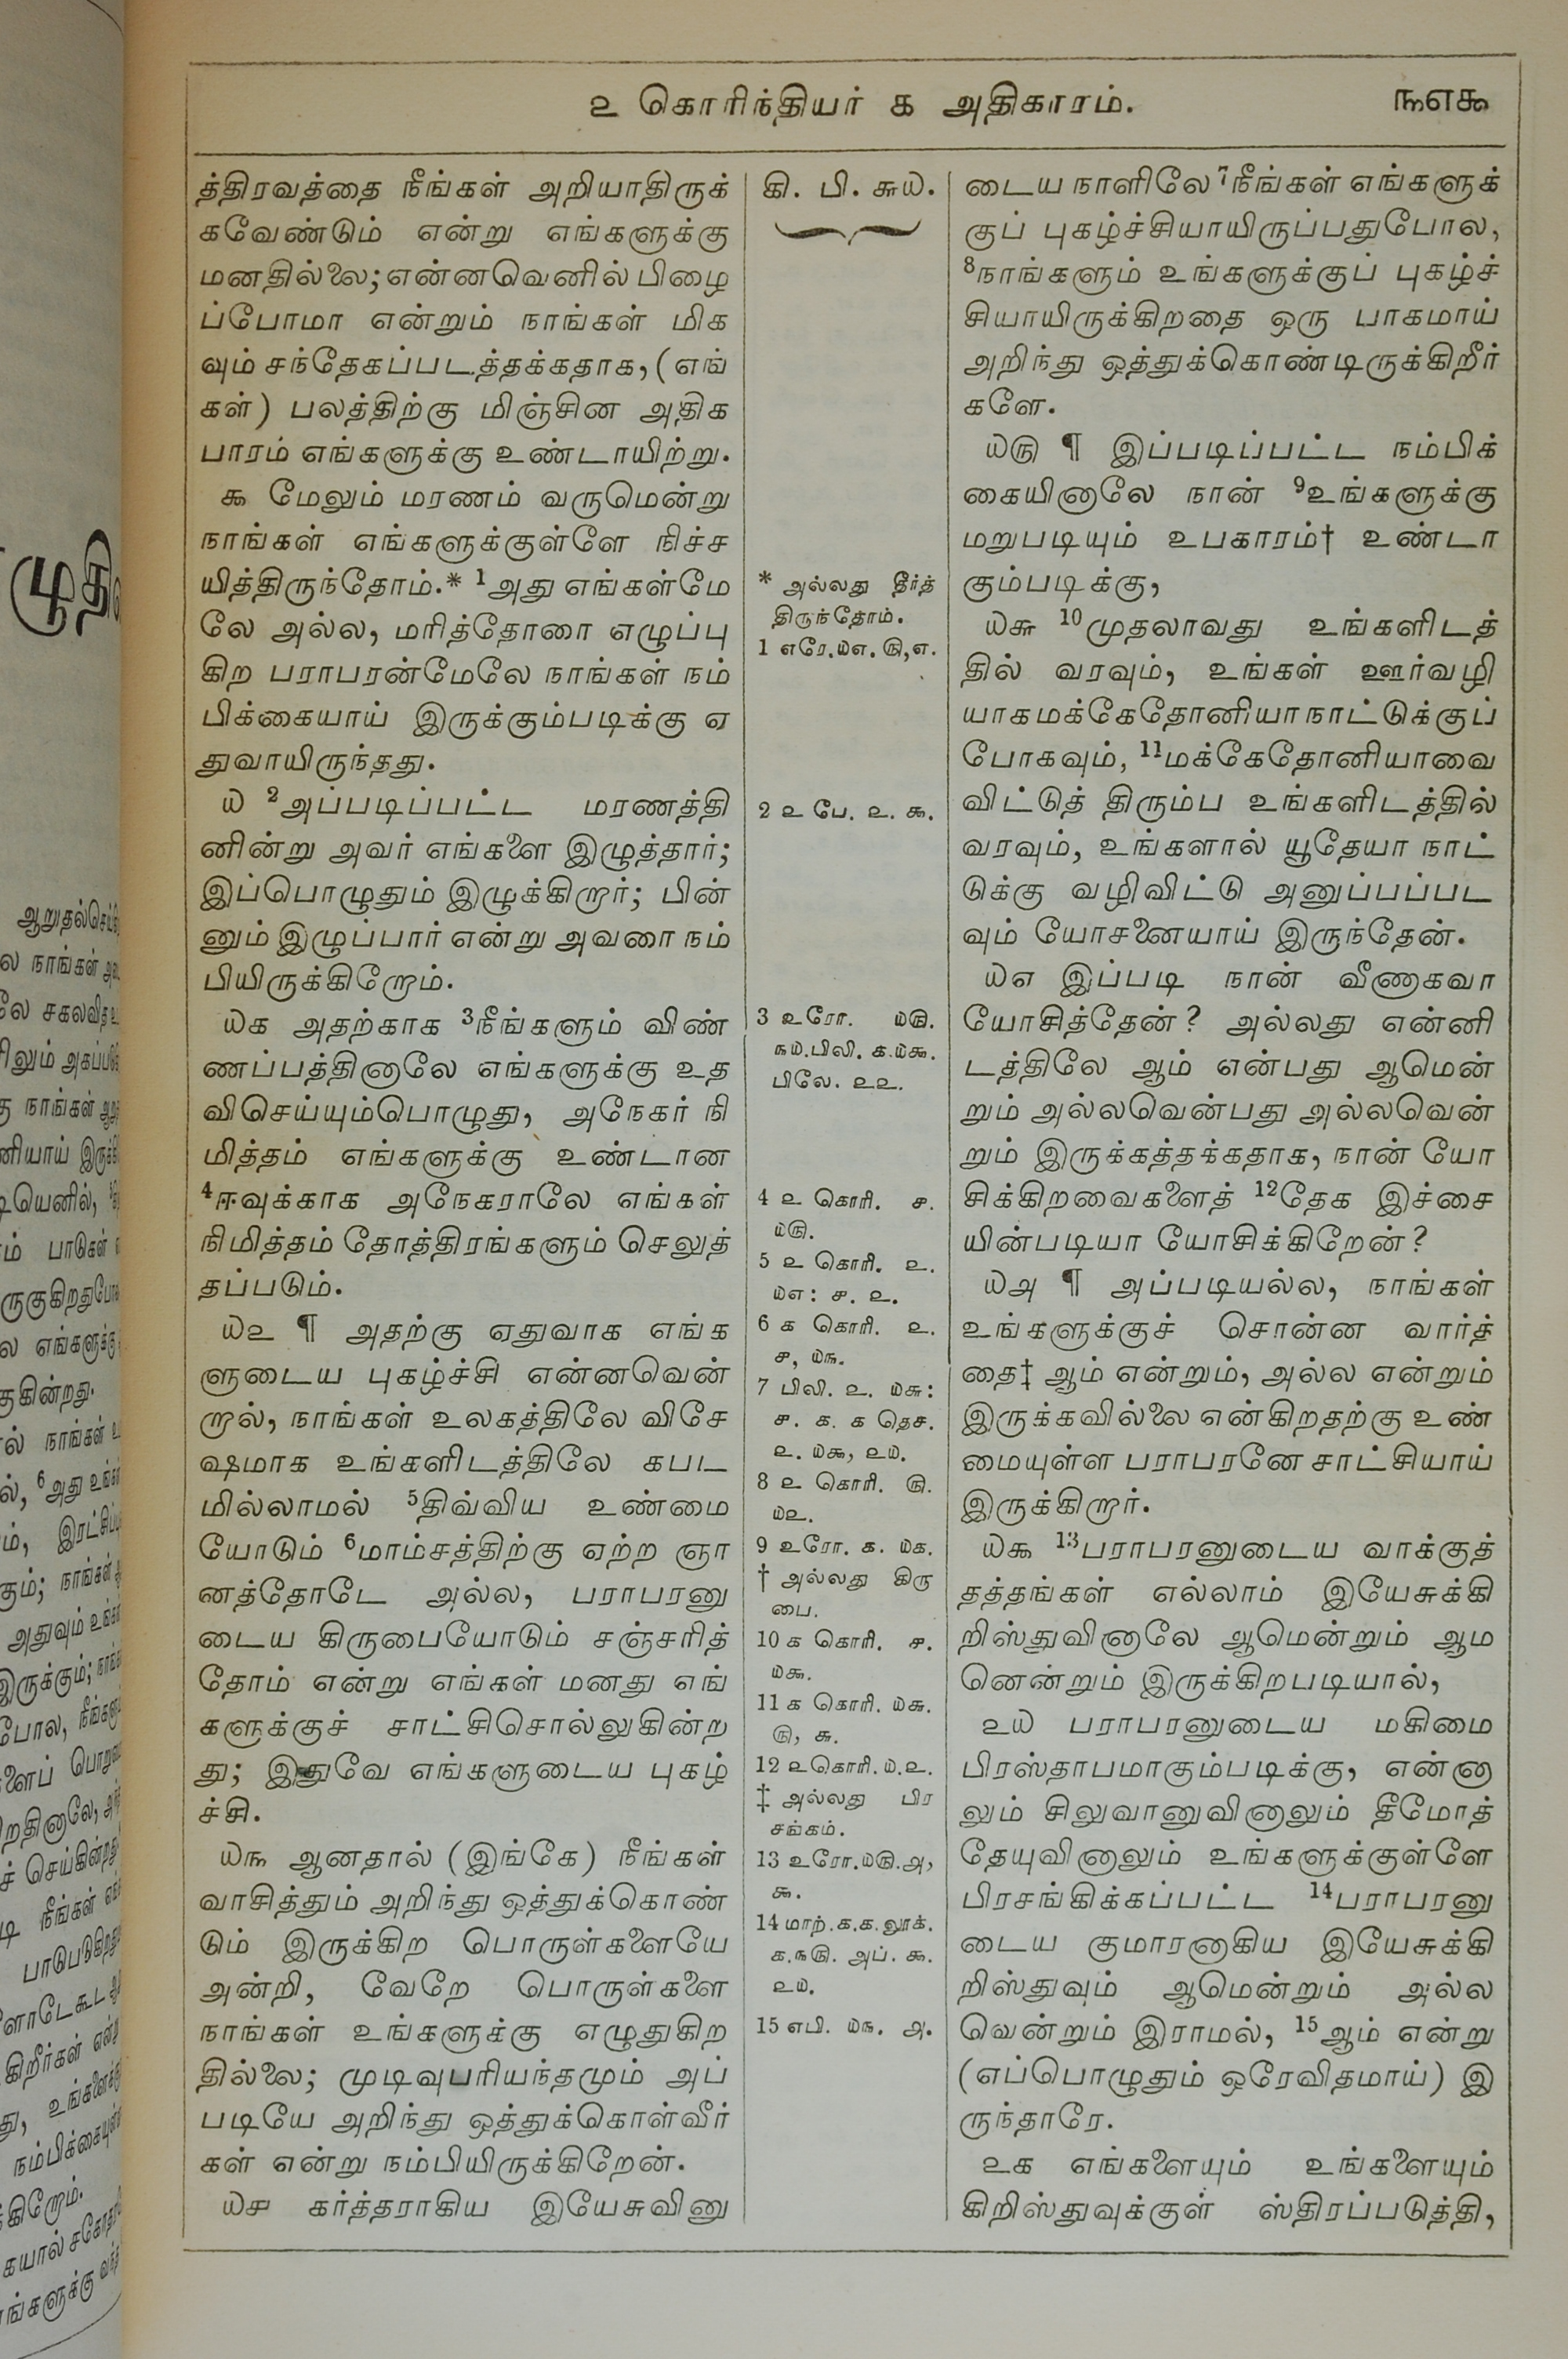 ௨ கொரிந்தியர் ௧ அதிகாரம்.
௩௭௯
த்திரவத்தை நீங்கள் அறியாதிருக்
கவேண்டும் என்று எங்களுக்கு
மனதில்லை; என்னவெனில் பிழை
ப்போமா என்றும் நாங்கள் மிக
வும் சந்தேகப்படத்தக்கதாக, (எங்
கள்) பலத்திற்கு மிஞ்சின அதிக
பாரம் எங்களுக்கு உண்டாயிற்று.
௯ மேலும் மரணம் வருமென்று
நாங்கள் எங்களுக்குள்ளே நிச்ச
யித்திருந்தோம்.* 1அது எங்கள்மே
லே அல்ல, மரித்தோரை எழுப்பு
கிற பராபரன்மேலே நாங்கள் நம்
பிக்கையாய் இருக்கும்படிக்கு ஏ
துவாயிருந்தது.
௰ 2அப்படிப்பட்ட மரணத்தி
னின்று அவர் எங்களை இழுத்தார்;
இப்பொழுதும் இழுக்கிறார்; பின்
னும் இழுப்பார் என்று அவரை நம்
பியிருக்கிறோம்.
௰௧ அதற்காக 3நீங்களும் விண்
ணப்பத்தினாலே எங்களுக்கு உத
விசெய்யும்பொழுது, அநேகர் நி
மித்தம் எங்களுக்கு உண்டான
4ஈவுக்காக அநேகராலே எங்கள்
நிமித்தம் தோத்திரங்களும் செலுத்
தப்படும்.
௰௨ ¶ அதற்கு ஏதுவாக எங்க
ளுடைய புகழ்ச்சி என்னவென்
றால், நாங்கள் உலகத்திலே விசே
ஷமாக உங்களிடத்திலே கபட
மில்லாமல் 5திவ்விய உண்மை
யோடும் 6மாம்சத்திற்கு ஏற்ற ஞா
னத்தோடே அல்ல, பராபரனு
டைய கிருபையோடும் சஞ்சரித்
தோம் என்று எங்கள் மனது எங்
களுக்குச் சாட்சிசொல்லுகின்ற
து; இதுவே எங்களுடைய புகழ்
ச்சி.
௰௩ ஆனதால் (இங்கே) நீங்கள்
வாசித்தும் அறிந்து ஒத்துக்கொண்
டும் இருக்கிற பொருள்களையே
அன்றி, வேறே பொருள்களை
நாங்கள் உங்களுக்கு எழுதுகிற
தில்லை; முடிவுபரியந்தமும் அப்
படியே அறிந்து ஒத்துக்கொள்வீர்
கள் என்று நம்பியிருக்கிறேன்.
௰௪ கர்த்தராகிய இயேசுவினு
கி. பி. ௬௰.
* அல்லது தீர்த்
திருந்தோம்.
1 எரே.௰௭.௫,௭.
2 ௨ பே. ௨. ௯.
3 உரோ. ௰௫.
௩௰.பிலி. ௧.௰௯.
பிலே. ௨௨.
4 ௨ கொரி. ௪.
௰௫.
5 ௨ கொரி. ௨.
௰௭: ௪. ௨.
6 ௧ கொரி. ௨.
௪, ௰௩.
7 பிலி. ௨. ௰௬:
௪. ௧. ௧ தெச.
௨. ௰௯, ௨௰.
8 ௨ கொரி. ௫.
௰௨.
9 உரோ. ௧. ௰௧.
† அல்லது கிரு
பை.
10 ௧ கொரி. ௪.
௰௯.
11 ௧ கொரி. ௰௬.
௫, ௬.
12 ௨கொரி.௰.௨.
‡ அல்லது பிர
சங்கம்.
13 உரோ.௰௫.௮,
௯.
14 மாற்.௧.௧.லூக்.
௧.௩௫. அப். ௯.
௨௰.
15 எபி. ௰௩. ௮.
டைய நாளிலே 7நீங்கள் எங்களுக்
குப் புகழ்ச்சியாயிருப்பதுபோல,
8நாங்களும் உங்களுக்குப் புகழ்ச்
சியாயிருக்கிறதை ஒரு பாகமாய்
அறிந்து ஒத்துக்கொண்டிருக்கிறீர்
களே.
௰௫ ¶ இப்படிப்பட்ட நம்பிக்
கையினாலே நான் 9உங்களுக்கு
மறுபடியும் உபகாரம்† உண்டா
கும்படிக்கு,
௰௬ 10முதலாவது உங்களிடத்
தில் வரவும், உங்கள் ஊர்வழி
யாகமக்கேதோனியாநாட்டுக்குப்
போகவும், 11மக்கேதோனியாவை
விட்டுத் திரும்ப உங்களிடத்தில்
வரவும், உங்களால் யூதேயா நாட்
டுக்கு வழிவிட்டு அனுப்பப்பட
வும் யோசனையாய் இருந்தேன்.
௰௭ இப்படி நான் வீணாகவா
யோசித்தேன்? அல்லது என்னி
டத்திலே ஆம் என்பது ஆமென்
றும் அல்லவென்பது அல்லவென்
றும் இருக்கத்தக்கதாக, நான் யோ
சிக்கிறவைகளைத் 12தேக இச்சை
யின்படியா யோசிக்கிறேன்?
௰௮ ¶ அப்படியல்ல, நாங்கள்
உங்களுக்குச் சொன்ன வார்த்
தை‡ ஆம் என்றும், அல்ல என்றும்
இருக்கவில்லை என்கிறதற்கு உண்
மையுள்ள பராபரனே சாட்சியாய்
இருக்கிறார்.
௰௯ 13பராபரனுடைய வாக்குத்
தத்தங்கள் எல்லாம் இயேசுக்கி
றிஸ்துவினாலே ஆமென்றும் ஆம
னென்றும் இருக்கிறபடியால்,
௨௰ பராபரனுடைய மகிமை
பிரஸ்தாபமாகும்படிக்கு, என்னா
லும் சிலுவானுவினாலும் தீமோத்
தேயுவினாலும் உங்களுக்குள்ளே
பிரசங்கிக்கப்பட்ட 14பராபரனு
டைய குமாரனாகிய இயேசுக்கி
றிஸ்துவும் ஆமென்றும் அல்ல
வென்றும் இராமல், 15ஆம் என்று
(எப்பொழுதும் ஒரேவிதமாய்) இ
ருந்தாரே.
௨௧ எங்களையும் உங்களையும்
கிறிஸ்துவுக்குள் ஸ்திரப்படுத்தி,